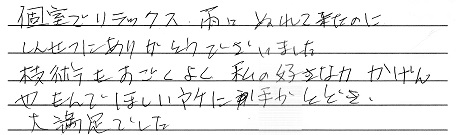 個室でリラックス、雨に ぬれて来たのに
しんせつにありがとうございました
技術もすごくよく 私の好きな力かげん
やもんでほしいヤケに手がとどき、
大満足でした